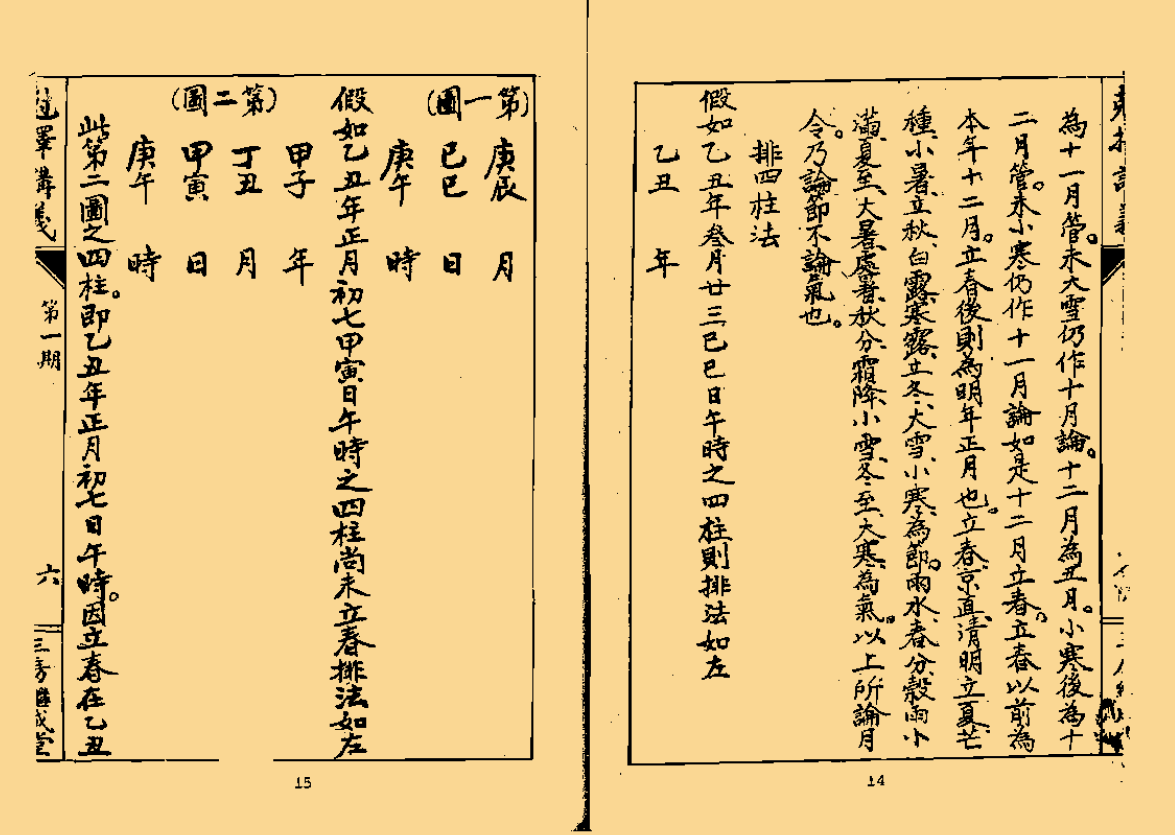 為十一月管。未大雪仍作十月論。十二月為丑月。小寒後為十
二月管。未小寒仍作十一月論如是十二月立春。立春以前為
本年十二月。立春後則為明年正月也。立春、京直、清明、立夏、芒
種、小暑、立秋、白露、寒露、立冬、大雪、小寒、為節。雨水、春分、穀雨、小
滿、夏至、大暑、處暑、秋分、霜降、小雪、冬至、大寒、為氣。以上所論月
令。乃論節不論氣也。
排四柱法
假如乙丑年叁月廿三己巳日午時之四柱則排法如左
乙丑 年
14
庚辰 月
己巳 日
庚午 時
(第一圖)
假如乙丑年正月初七甲寅日午時之四柱尚未立春排法如左
甲子 年
丁丑 月
甲寅 日
庚午 時
(第二圖)
此第二圖之四柱。即乙丑年正月初七日午時。因立春在乙丑
講義
第一期
六
15